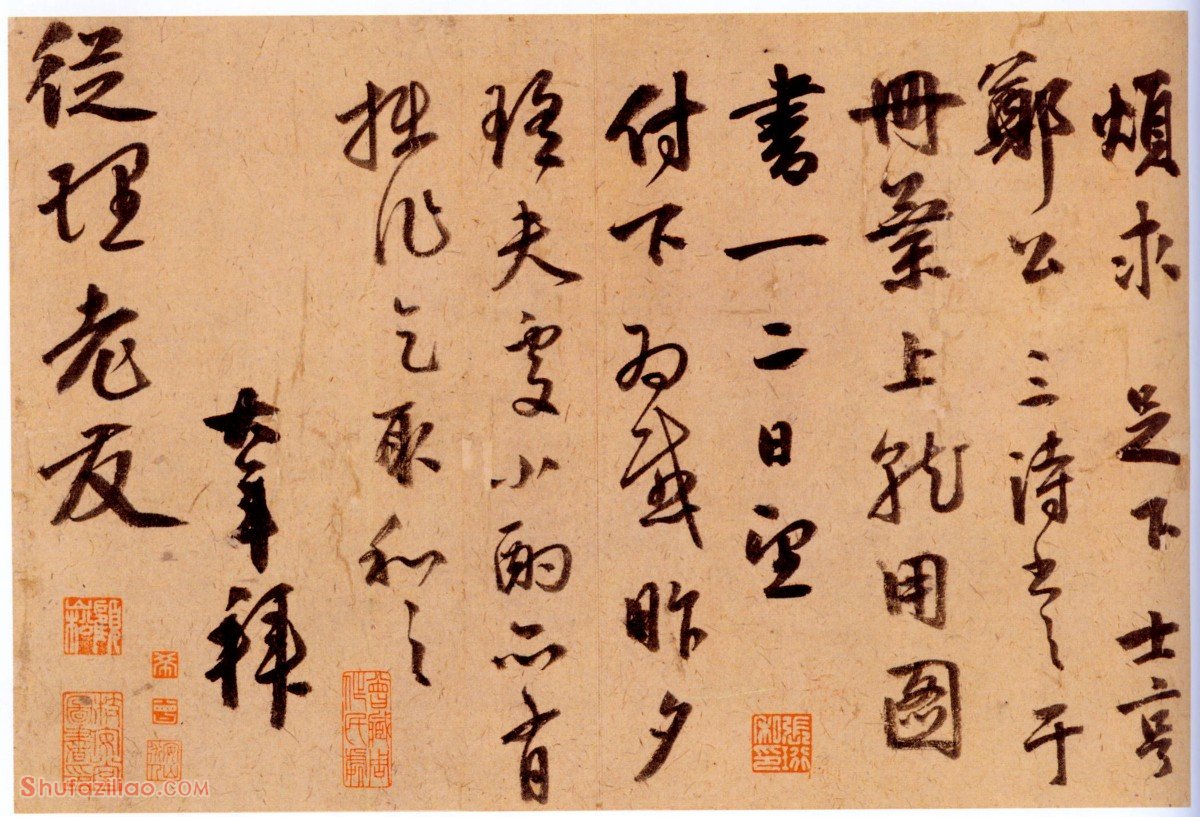 煩求足下士亨
鄭公三詩書之于
冊葉上就用圖
書一二日望
付下為感昨夕
夫處小酌所有
拙作乞取和之
大年拜
從理老友
Shufaziliao.com